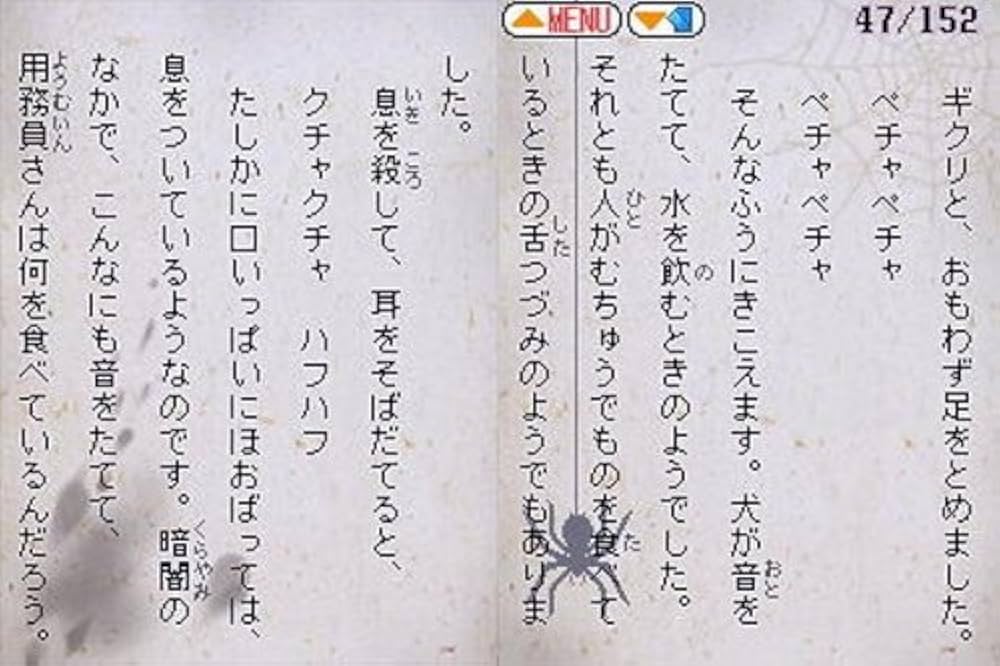 MENU
47/152
ギクリと、おもわず足をとめました。
ペチャペチャ
ペチャペチャ
そんなふうにきこえます。犬が音を
たてて、水を飲むときのようでした。
それとも人がむちゅうでものを食べて
いるときの舌つづみのようでもありま
した。
息を殺して、耳をそばだてると、
クチャクチャ　ハフハフ
たしかに口いっぱいにほおばっては、
息をついているようなのです。暗闇の
なかで、こんなにも音をたてて、
用務員さんは何を食べているんだろう。